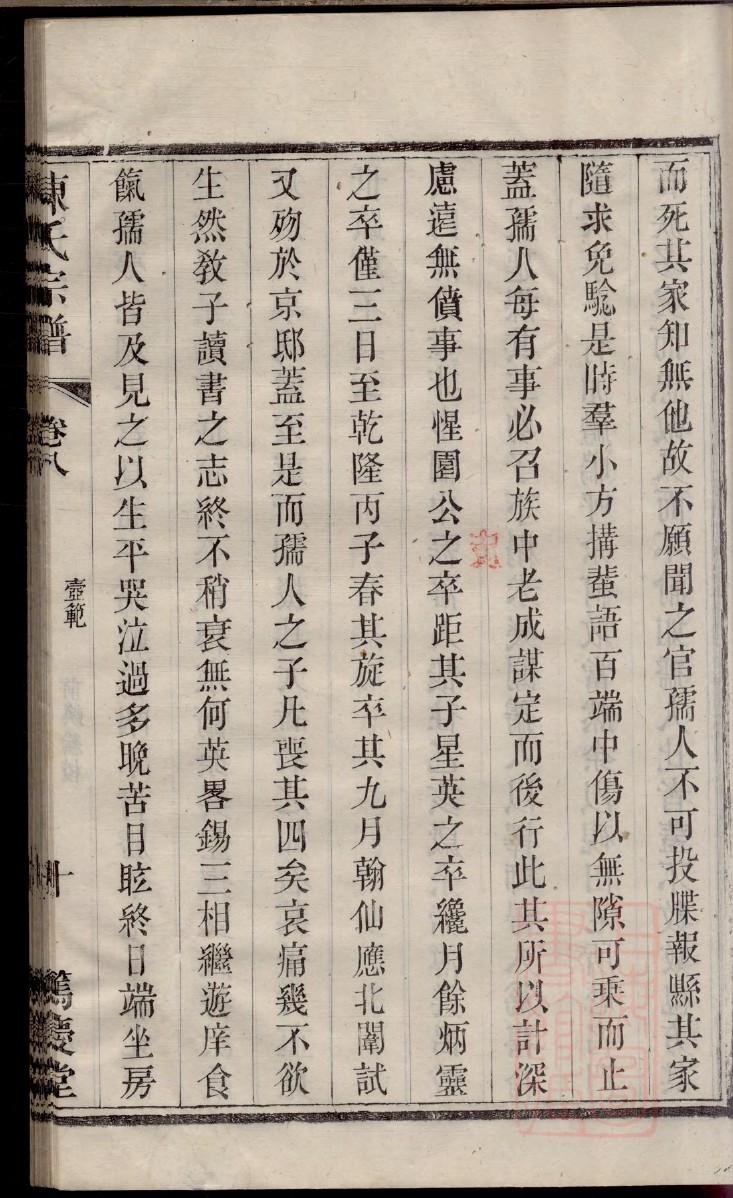 而死其家知無他故不願聞之官孺人不可投牒報縣其家
隨求免驗是時羣小方搆蜚語百端中傷以無隙可乘而止
葢孺人每有事必召族中老成謀定而後行此其所以計深
慮遠無僨事也惺園公之卒距其子星英之卒纔月餘炳靈
之卒僅三日至乾隆丙子春其旋卒其九月翰仙應北闈試
又歿於京邸葢至是而孺人之子凡喪其四矣哀痛幾不欲
生然敎子讀書之志終不稍衰無何英畧錫三相繼遊庠食
餼孺人皆及見之以生平哭泣過多晚苦目眩終日端坐房
陳氏宗譜 卷八 壼範 十 篤慶堂